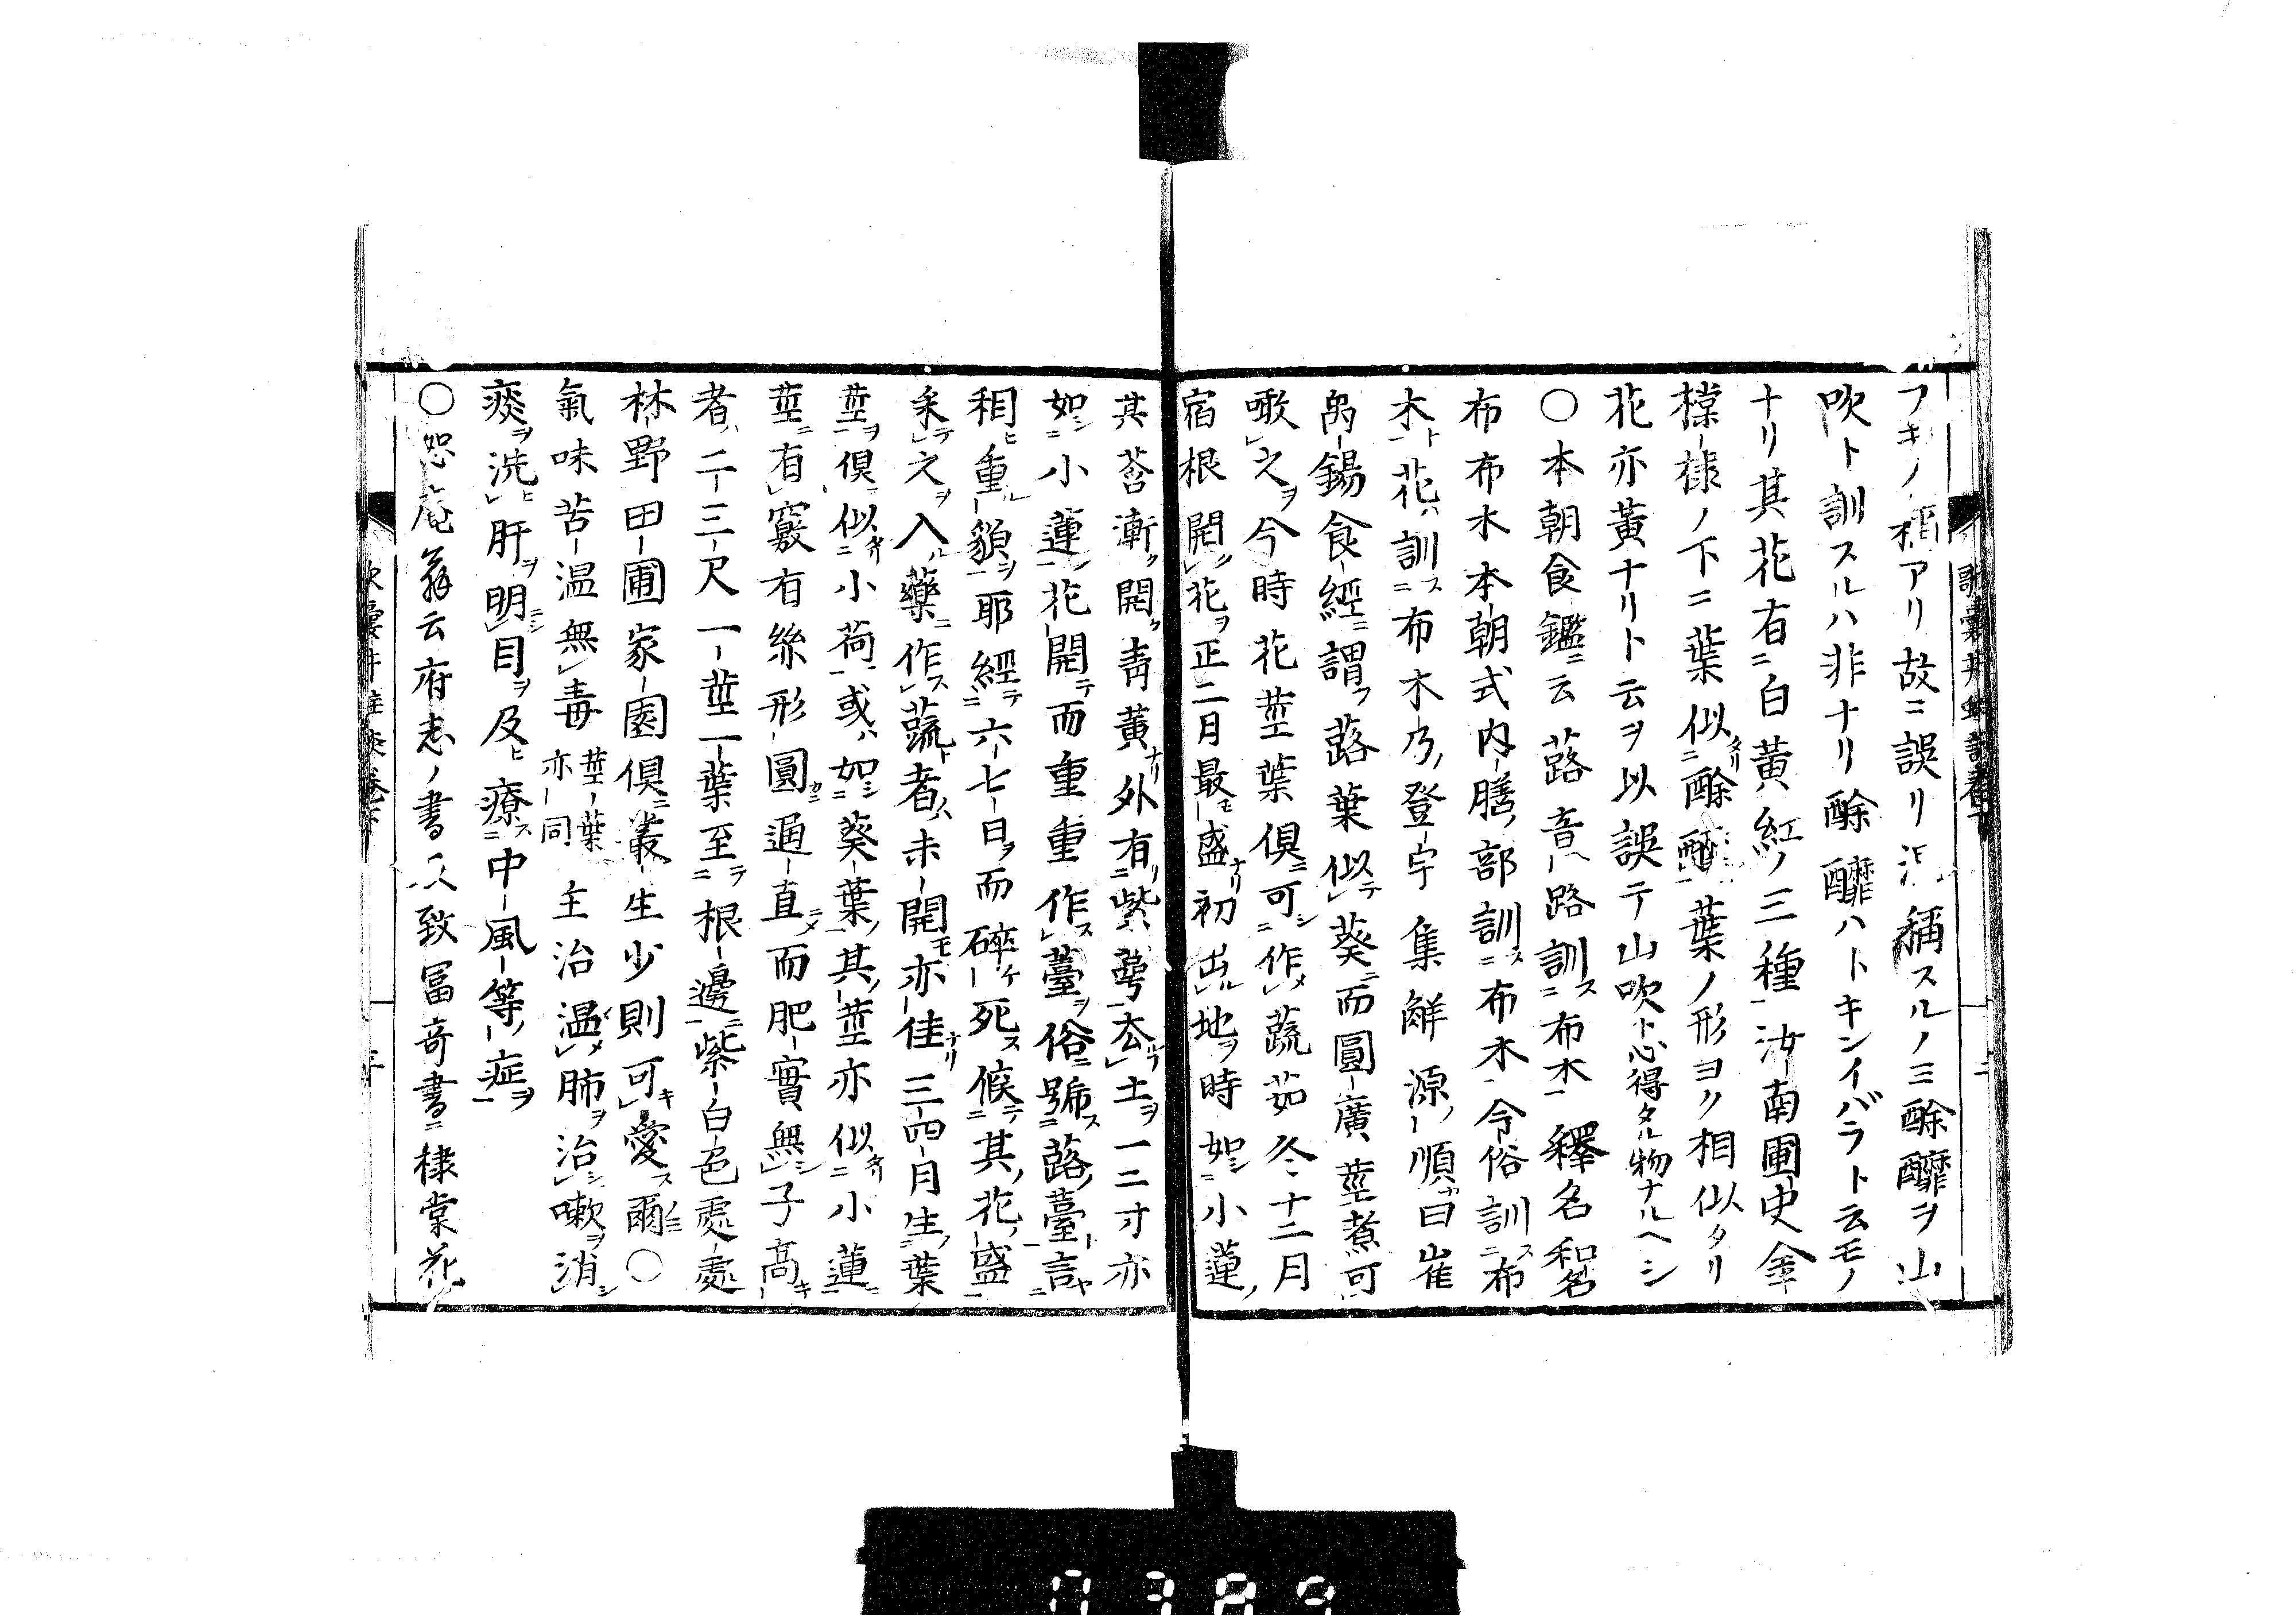 フキノ稱アリ故ニ誤リ稱スルノミ酴醿ヲ山
吹ト訓スルハ非ナリ酴醿ハトキンイバラト云モノ
ナリ其花有ニ白黄紅ノ三種一汝南圃史金
樣ノ下ニ葉似タリニ酴醿一葉ノ形ヨク相似タリ
花亦黄ナリト云ヲ以誤テ山吹ト心得タル物ナルヘシ
○本朝食鑑ニ云蕗音ハ路訓スニ布木一釋名和名
布布木本朝式内膳部訓スニ布木一今俗訓スニ布
木ト一花ハ訓スニ布木乃登宇集解源ノ順カ曰崔
禹錫食經ニ謂フ蕗葉似テレ葵ニ而圓廣莖煮可
噉レ之ヲ今時花莖葉倶ニ可シニ作メレ蔬茹冬十二月
宿根開クレ花ヲ正二月最モ盛ナリ初出ルレ地ヲ時如シニ小蓮ノ
其莟漸ク開ク青黄ナリ外有リニ紫萼一去ルレ土ヲ一二寸亦
如シニ小蓮ノ一花開テ而重重作スレ薹ヲ俗ニ號スニ蕗ノ薹ト一言ヤ
相ヒ重ル貌ヲ一耶經テニ六七日ヲ而碎ケ死ス候テニ其ノ花ノ盛一
采テレ之ヲ入ルレ藥ニ作スレ蔬ト者ハ未開モ亦佳ナリ三四月生ノ葉
莖ヲ一倶ニ似タリニ小荷ニ一或ハ如シニ葵葉ノ一其ノ莖亦似タリニ小蓮ニ
莖ニ一有レ竅有絲形圓カニ逼直ニメ而肥實無シレ子高キ
者ハ二三尺一莖一葉至テニ根邊ニ一紫白色處處
林野田圃家園倶ニ叢生少則可キレ愛ス爾ノミ○
氣味苦温無レ毒莖ノ葉亦同主治温メレ肺ヲ治シレ嗽ヲ消シレ
痰ヲ洗ヒレ肝ヲ明ニシレ目ヲ及ヒ療スニ中風等ノ症ヲ一
○怨庵翁云府志ノ書又致冨奇書ニ棣棠花